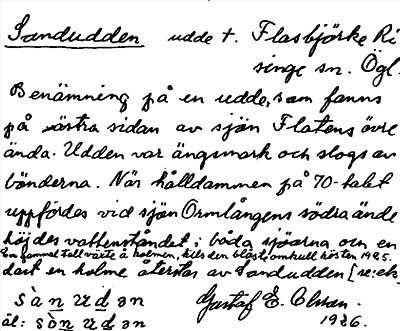 Sandudden udde t. Flasbjörke Ri
singe sn. Ögl.
Benämning på en udde, som fanns
på västra sidan av sjön Flatens övre
ända. Udden var ängsmark och slogs av
bönderna. När hålldammen på 70-talet
uppfördes vid sjön Ormlångens södra ände
höjdes vattenståndet i båda sjöarna och en
En gammal tall växte å holmen, tills den blåste omkull hösten 1925.
dast en holme återstår av Sandudden [se: ek.
sàn ud ən
äl: sòn ud ən
Gustaf E. Olsson.
1926.